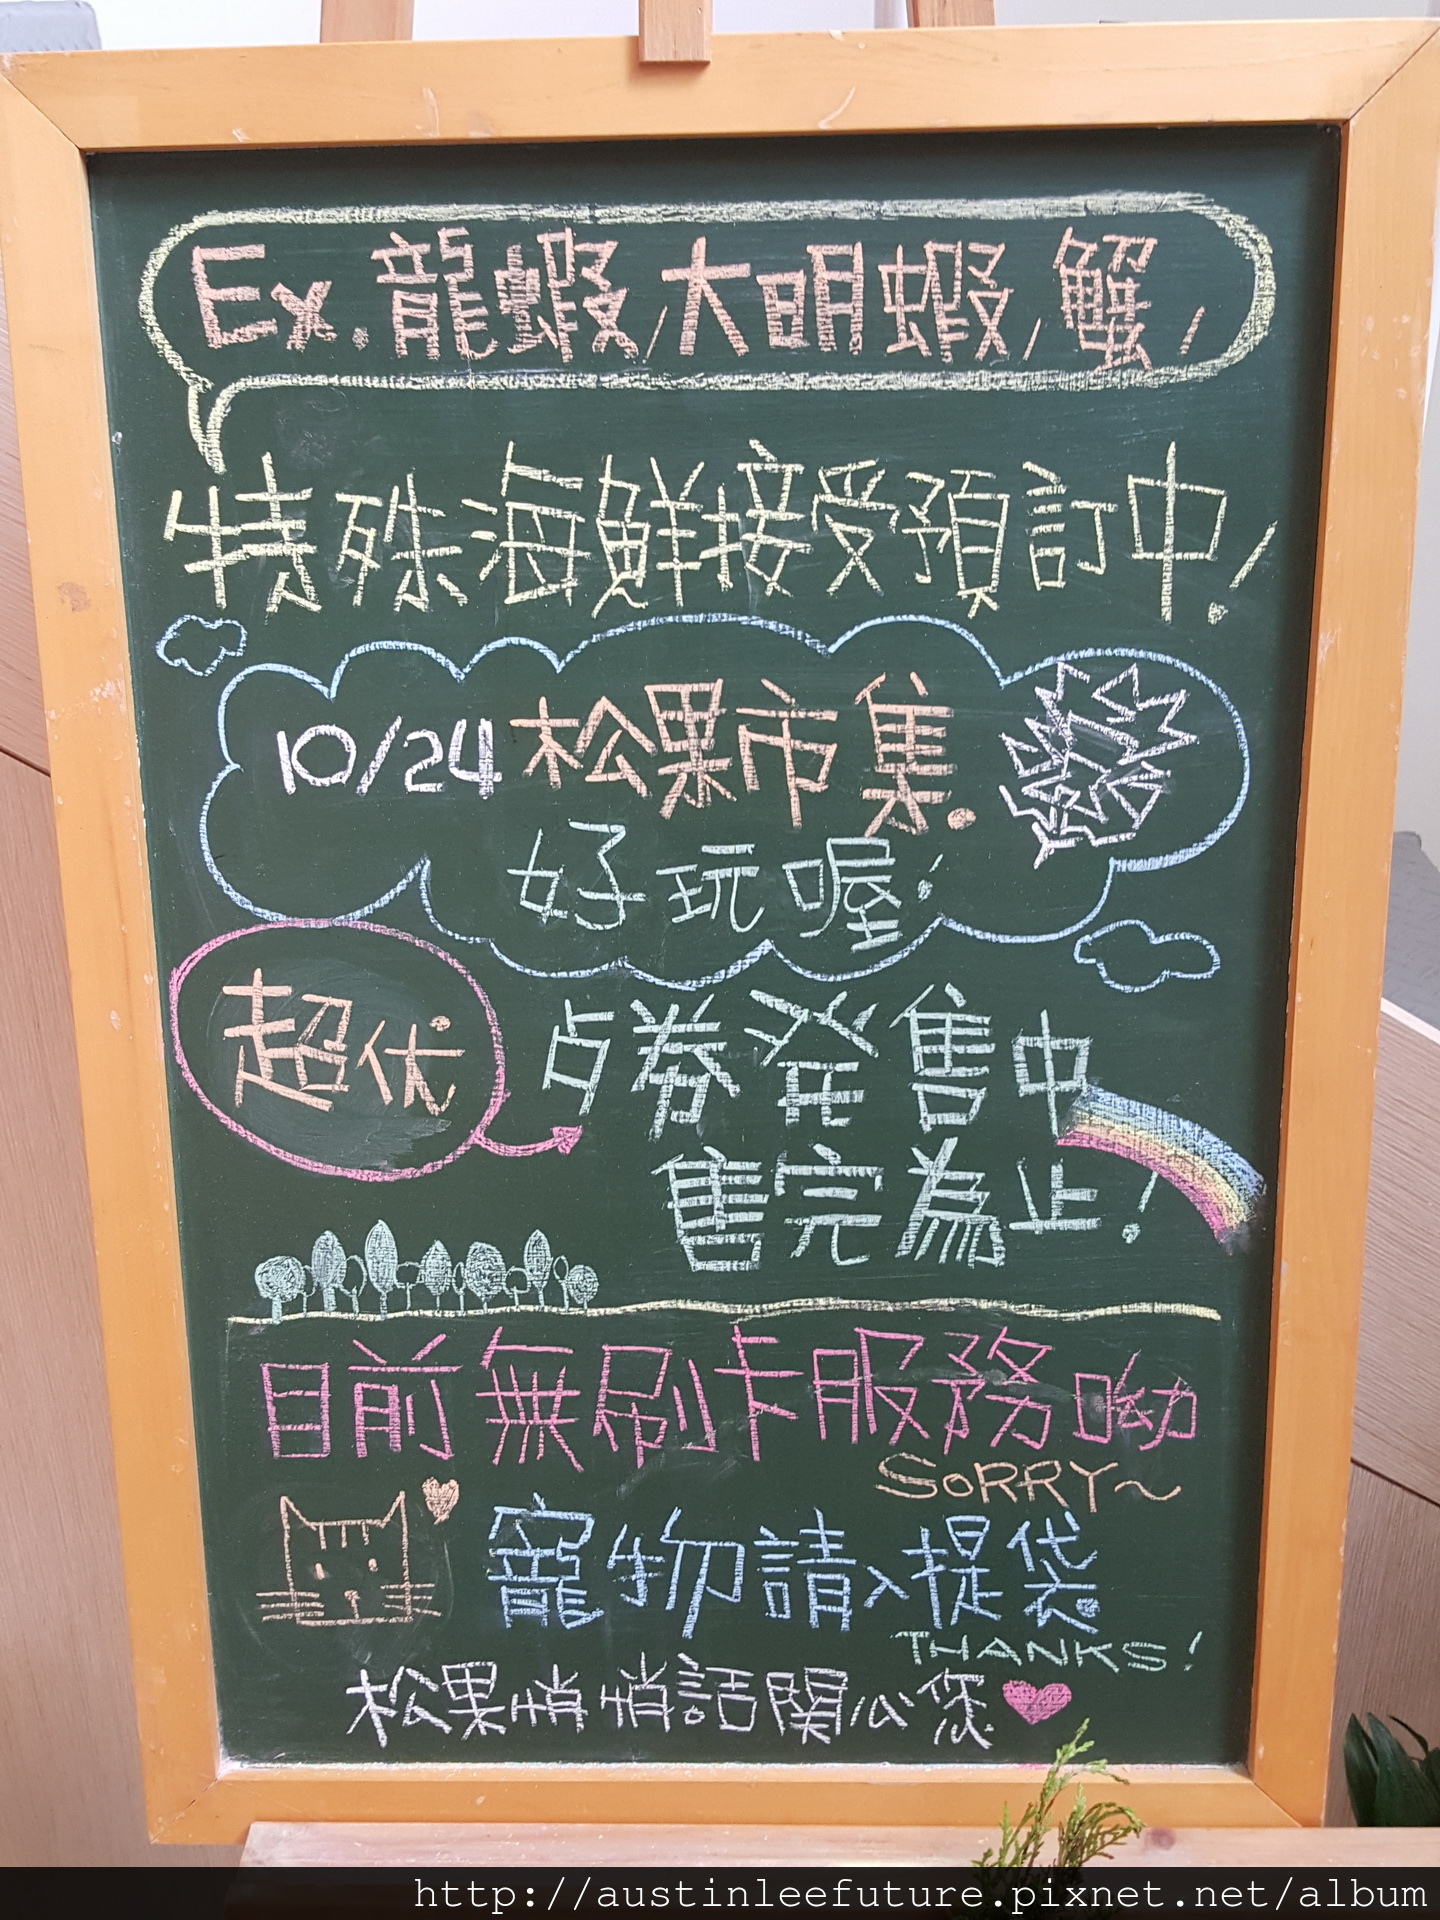 Ex.龍蝦,大明蝦,蟹,
特殊海鮮接受預訂中!
10/24松果市集.
好玩喔!
超优
点券発售中
售完為止!
目前無刷卡服務呦
SORRY~
寵物請入提袋
THANKS!
松果悄悄話關心您
http://austinleefuture.pixnet.net/album